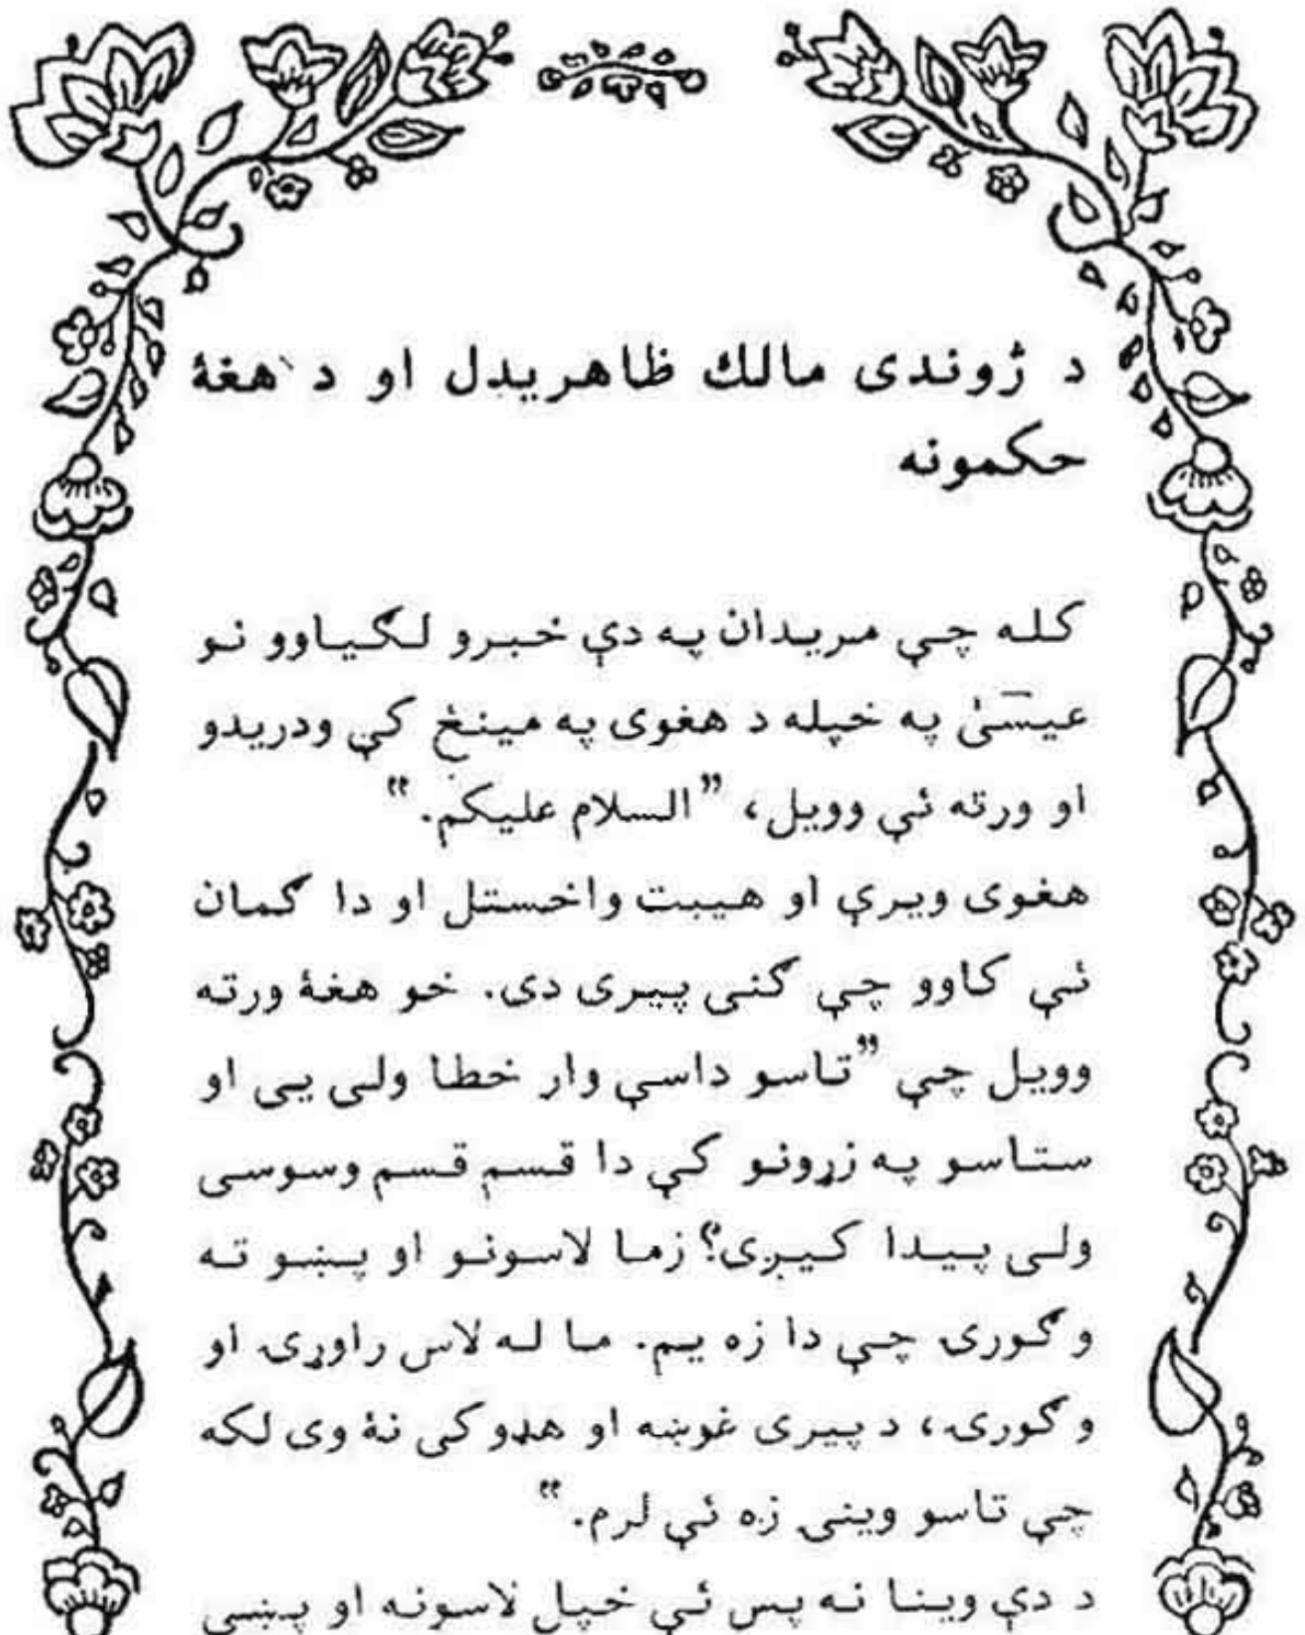 د ژوندی مالك ظاهریدل او د هغۀ
حکمونه
کله چې مریدان په دې خبرو لګیاوو نو
عیسیٰ په خپله د هغوی په مینځ کې ودریدو
او ورته ئې وویل، ”السلام علیکم.“
هغوی ویرې او هیبت واخستل او دا ګمان
ئې کاوو چې ګنی پیری دی. خو هغۀ ورته
وویل چې ”تاسو داسې وار خطا ولی یی او
ستاسو په زړونو کې دا قسم قسم وسوسی
ولی پیدا کیږی؟ زما لاسونو او پښو ته
وګورۍ چې دا زه یم. ما له لاس راوړۍ او
وګورۍ، د پیری غوښه او هډوکی نۀ وی لکه
چې تاسو وینۍ زه ئې لرم.“
د دې وینا نه پس ئې خپل لاسونه او پښی